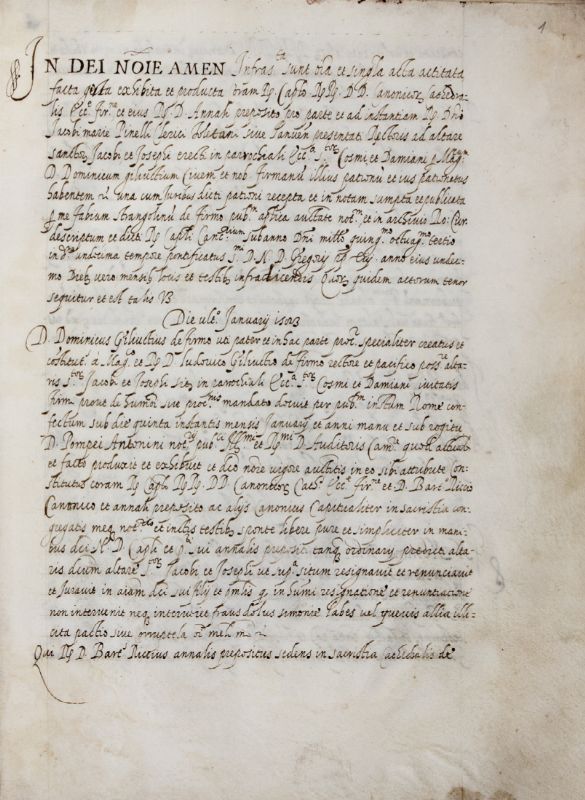 1
IN DEI NOIE AMEN Infras.ta sunt oia et singla acta actitata
facta gesta exhibita et producta coram R. Caplo RR DD Canonicor Cathedra-
lis Ecc. Fir.ne et eius R. D. Annali preposito pro parte et ad instantiam R. Dni
Jacobi marie Pinelli clerici sive Januen presentati Rectoris ad altare
sanctor Jacobi et Josephi erecti in parrochiali Ecc.a S.tor Cosmi et Damiani p Mag.m
D. Dominicum gilucttium Civem et nob. firmanu illius patronu et ius patronatus
habentem una cum Juribus dicti patroni recepta et in notam sumpta et publicata
p me fabium strangolinu de firmo pub.m aplica auctate not.m et in archivio Ro: Cur.
descriptum et dicti R. Capli Canc.rium sub anno Dni mill.o quing.mo ottuag.mo tertio
ind. undecima tempore pontificatus S. D. N. D. Gregorij pp xiij anno eius undeci-
mo Dieb. vero mensib. locis et testib. infradicendis Quor. quidem actorum tenor
sequitur et est talis
Die ult. January 1583
D. Dominicus Giluctius de firmo uti pater et in hac parte pror. specialiter creatus et
constitut. a Mag.co et R. D. ludovico Giluctio de firmo rectore et pacifico poss.re alta-
ris S.tor Jacobi et Josephi siti in parochiali Ecc.a S.tor Cosmi et Damiani civitatis
firm. prout de sive mandato docuit per pub.m instrum Rome con-
fectum sub die quinta instantis mensis January et anni manu et sub rogitu
D. Pompei Antonini not. et D. Auditoris Cam.
et facto produxit et exhibuit et dicto noie vigore auctatis in eo sibi attribute Con-
stitutus coram R. Caplo RR DD. Canonicor Cath. Ecc. Fir.ne et D. Bart. Ruccio
Canonico et annali preposito ac alijs Canonicis Capitulariter in sacristia con-
gregatis meq. not. et infris testib. sponte libere pure et simpliciter in mani-
bus dci R. D. Capli et p. sui annalis prepositi tanq. ordinarij predict. alta-
ris dictum altare S.tor Jacobi et Josephi ut sup. situm resignavit et renunciavit
et Juravit in aiam dci sui q. in humoi resignatione et renuntiatione
non intervenit neq. interveniet fraus dolus simonie labes vel quevis alia illi-
cita pactio sive corruptela
Qui R. D. Bart. Ructius annalis prepositus sedens in sacristia Cathedralis de